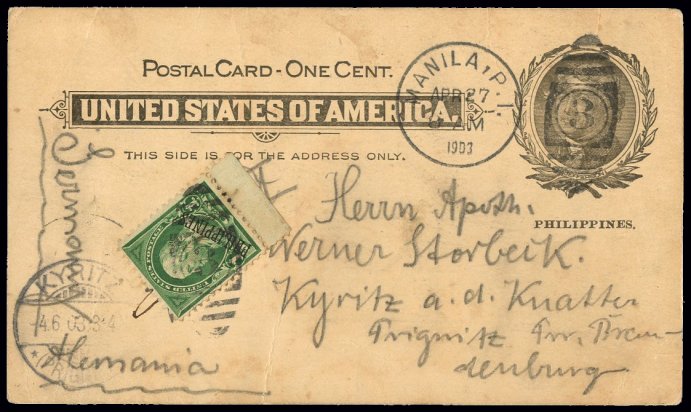 POSTAL CARD - ONE CENT.
UNITED STATES OF AMERICA.
THIS SIDE IS FOR THE ADDRESS ONLY.
MANILA, P. I.
APR 27
AM
1903
3
PHILIPPINES.
PHILIPPINES
Germania
Herrn Apoth.
Werner Storbeck.
Kyritz a. d. Knatter
Prignitz Prv. Bran-
denburg
KYRITZ
4.6.03.3-4
(PRIG
Alemania